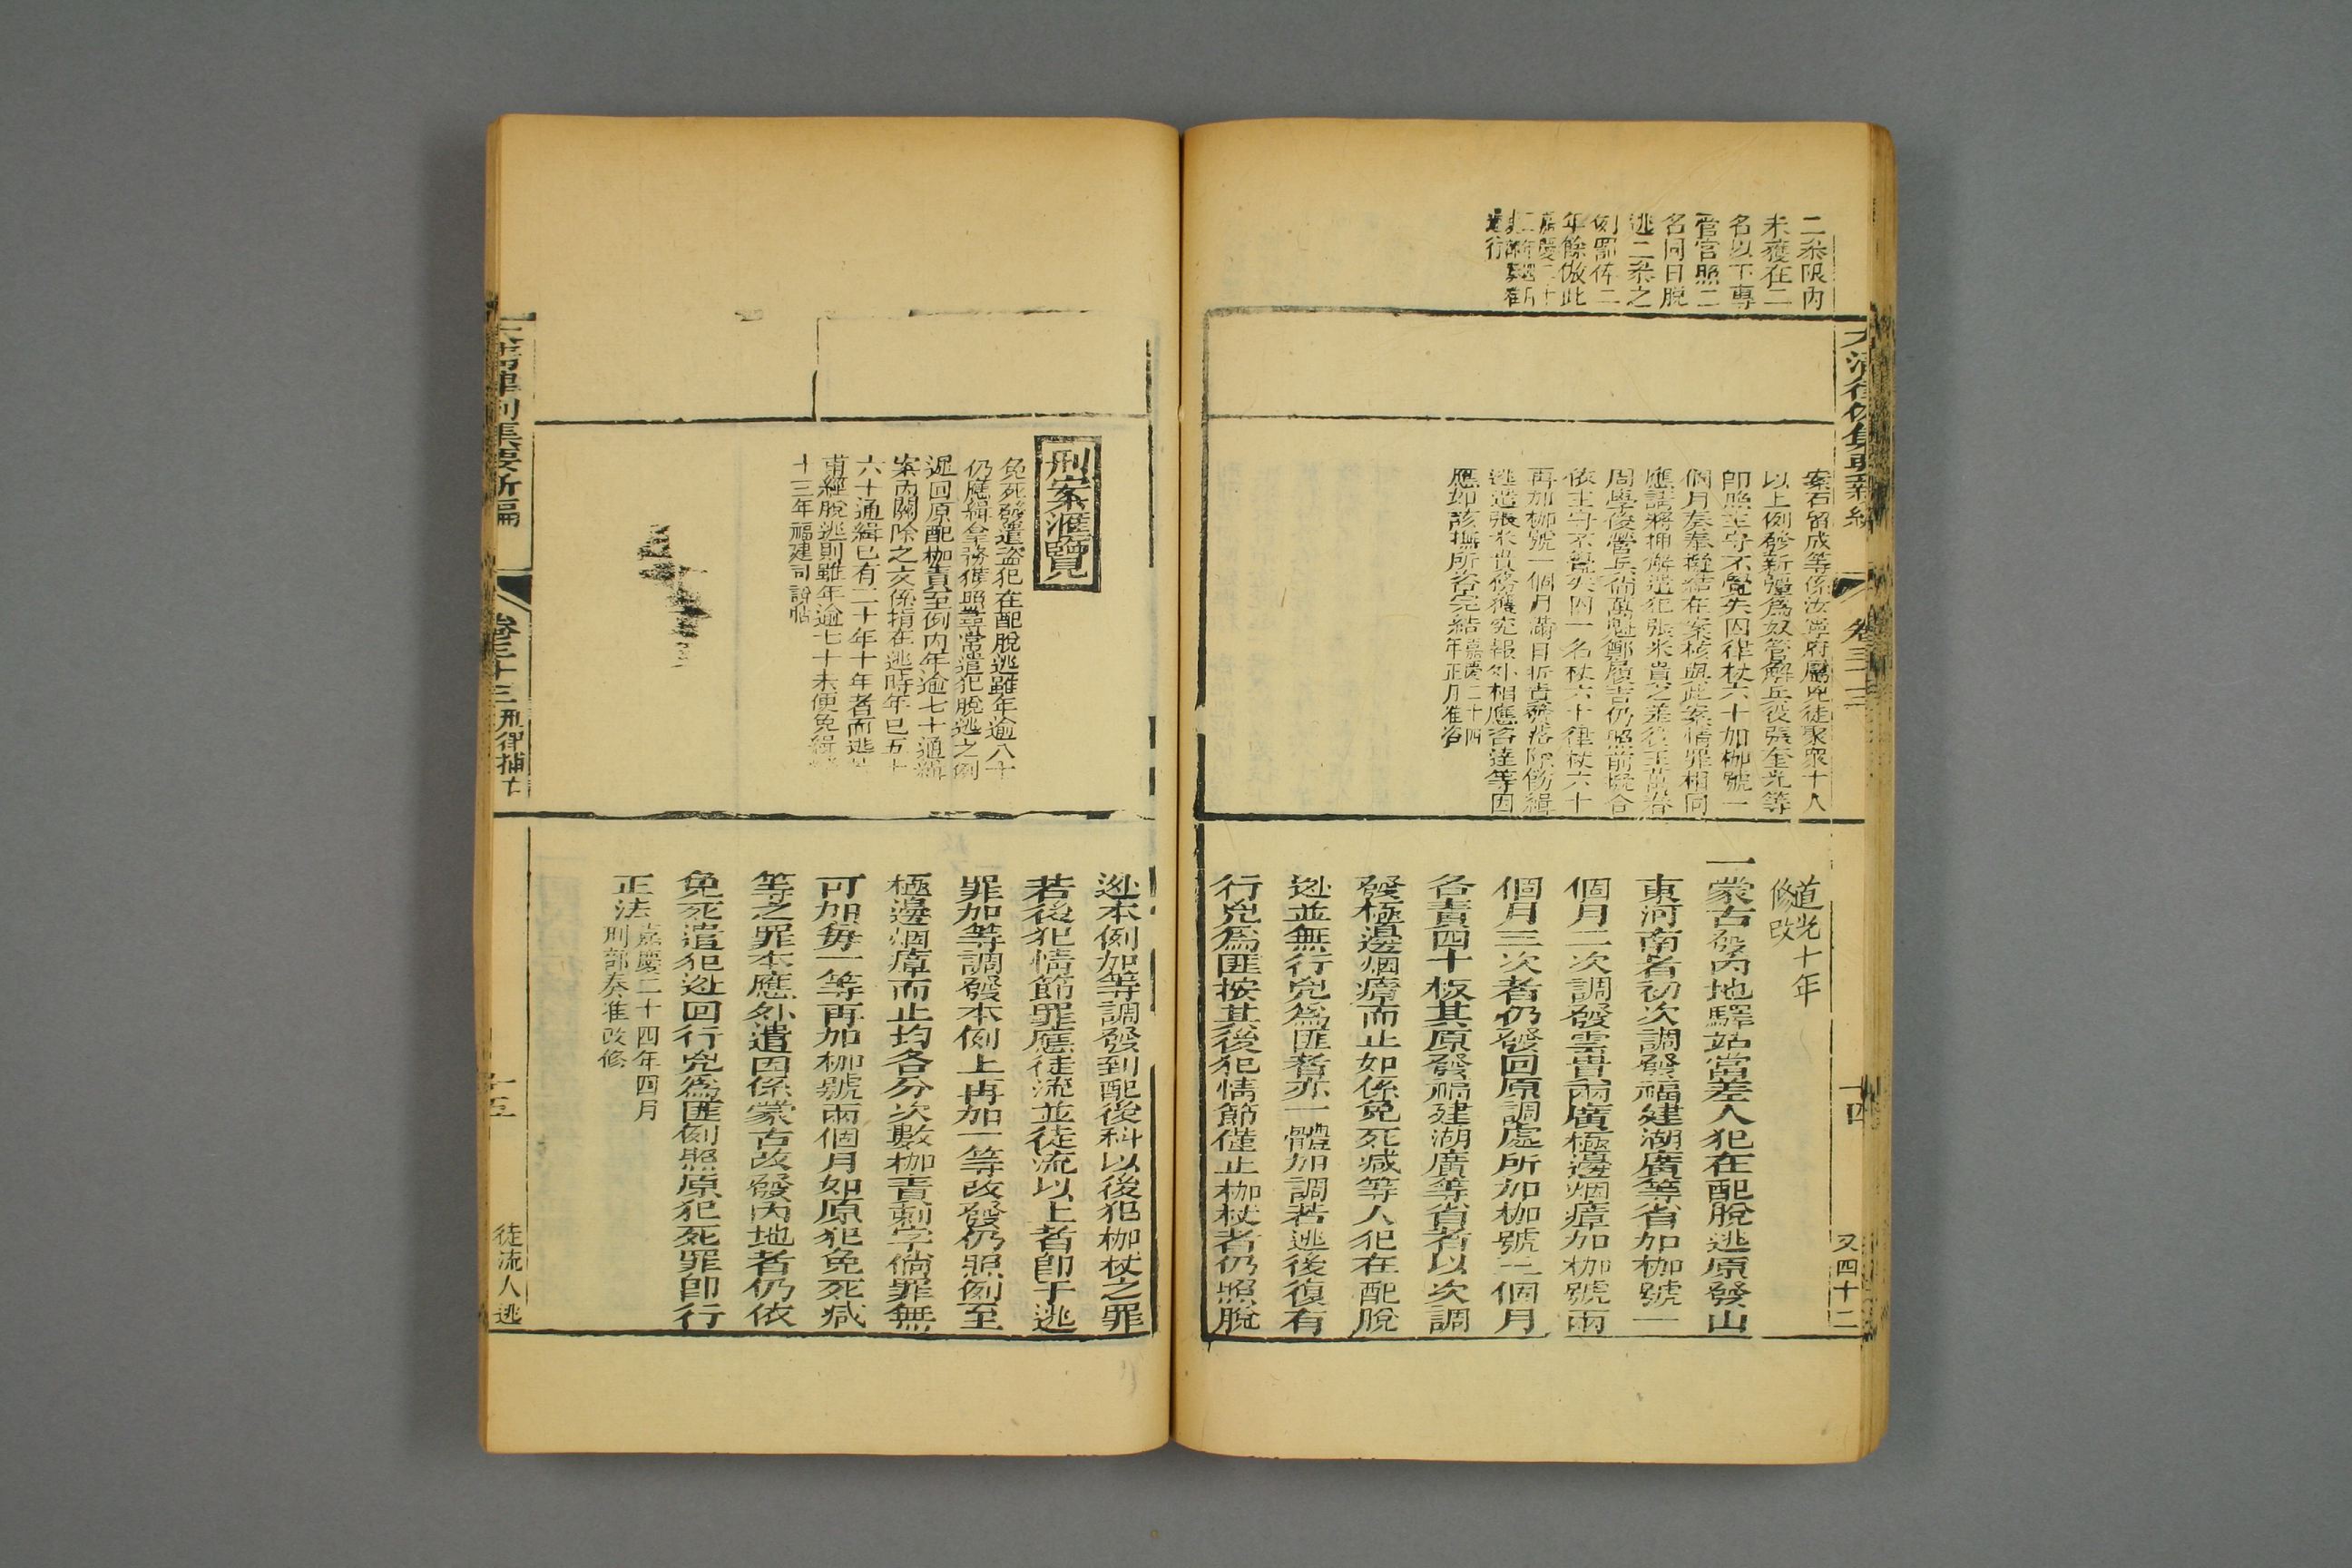 二叅限內
未獲在二
名以下專
管官照二
名同日脫
逃二叅之
例罰俸二
年餘倣此
嘉慶二十
遵行
大清律例集要新編
卷三十三
十四
又四十二
案石留成等係汝寧府屬兇徒聚眾十人
以上例發新疆爲奴管解兵役張奎光等
卽照主守不覺失囚律杖六十加枷號一
個月奏奉擬結在案核與此案情罪相同
應請將押解遣犯張米貴之差役王萬春
周學俊營兵衛萬魁鄭履吉仍照前擬合
依主守不覺失囚一名杖六十律杖六十
再加枷號一個月滿日折責發落除飭緝
逃遣張米貴務獲究報外相應咨達等因
應如該撫所咨完結嘉慶二十四年正月准咨
道光十年
修改
一蒙古發內地驛站當差人犯在配脫逃原發山
東河南者初次調發福建湖廣等省加枷號一
個月二次調發雲貴兩廣極邊烟瘴加枷號兩
個月三次者仍發回原調處所加枷號三個月
各責四十板其原發福建湖廣等省者以次調
發極邊烟瘴而止如係免死減等人犯在配脫
逃並無行兇爲匪者亦一體加調若逃後復有
行兇爲匪按其後犯情節僅止枷杖者仍照脫
刑案滙覽
免死發遣盜犯在配脫逃雖年逾八十
仍應緝拿務獲照尋常遣犯脫逃之例
遞回原配枷責至例內年逾七十通緝
案內開除之文係指在逃時年已五十
六十通緝已有二十年十年者而逃
甫經脫逃則雖年逾七十未便免緝
十三年福建司說帖
逃本例加等調發到配後科以後犯枷杖之罪
若後犯情節罪應徒流並徒流以上者卽于逃
罪加等調發本例上再加一等改發仍照例至
極邊烟瘴而止均各分次數枷責刺字倘罪無
可加毎一等再加枷號兩個月如原犯免死減
等之罪本應外遣因係蒙古改發內地者仍依
免死遣犯逃回行兇爲匪例照原犯死罪卽行
正法嘉慶二十四年四月
刑部奏准改修
大清律例集要新編
卷三十三刑律捕亡
十五
徒流人逃